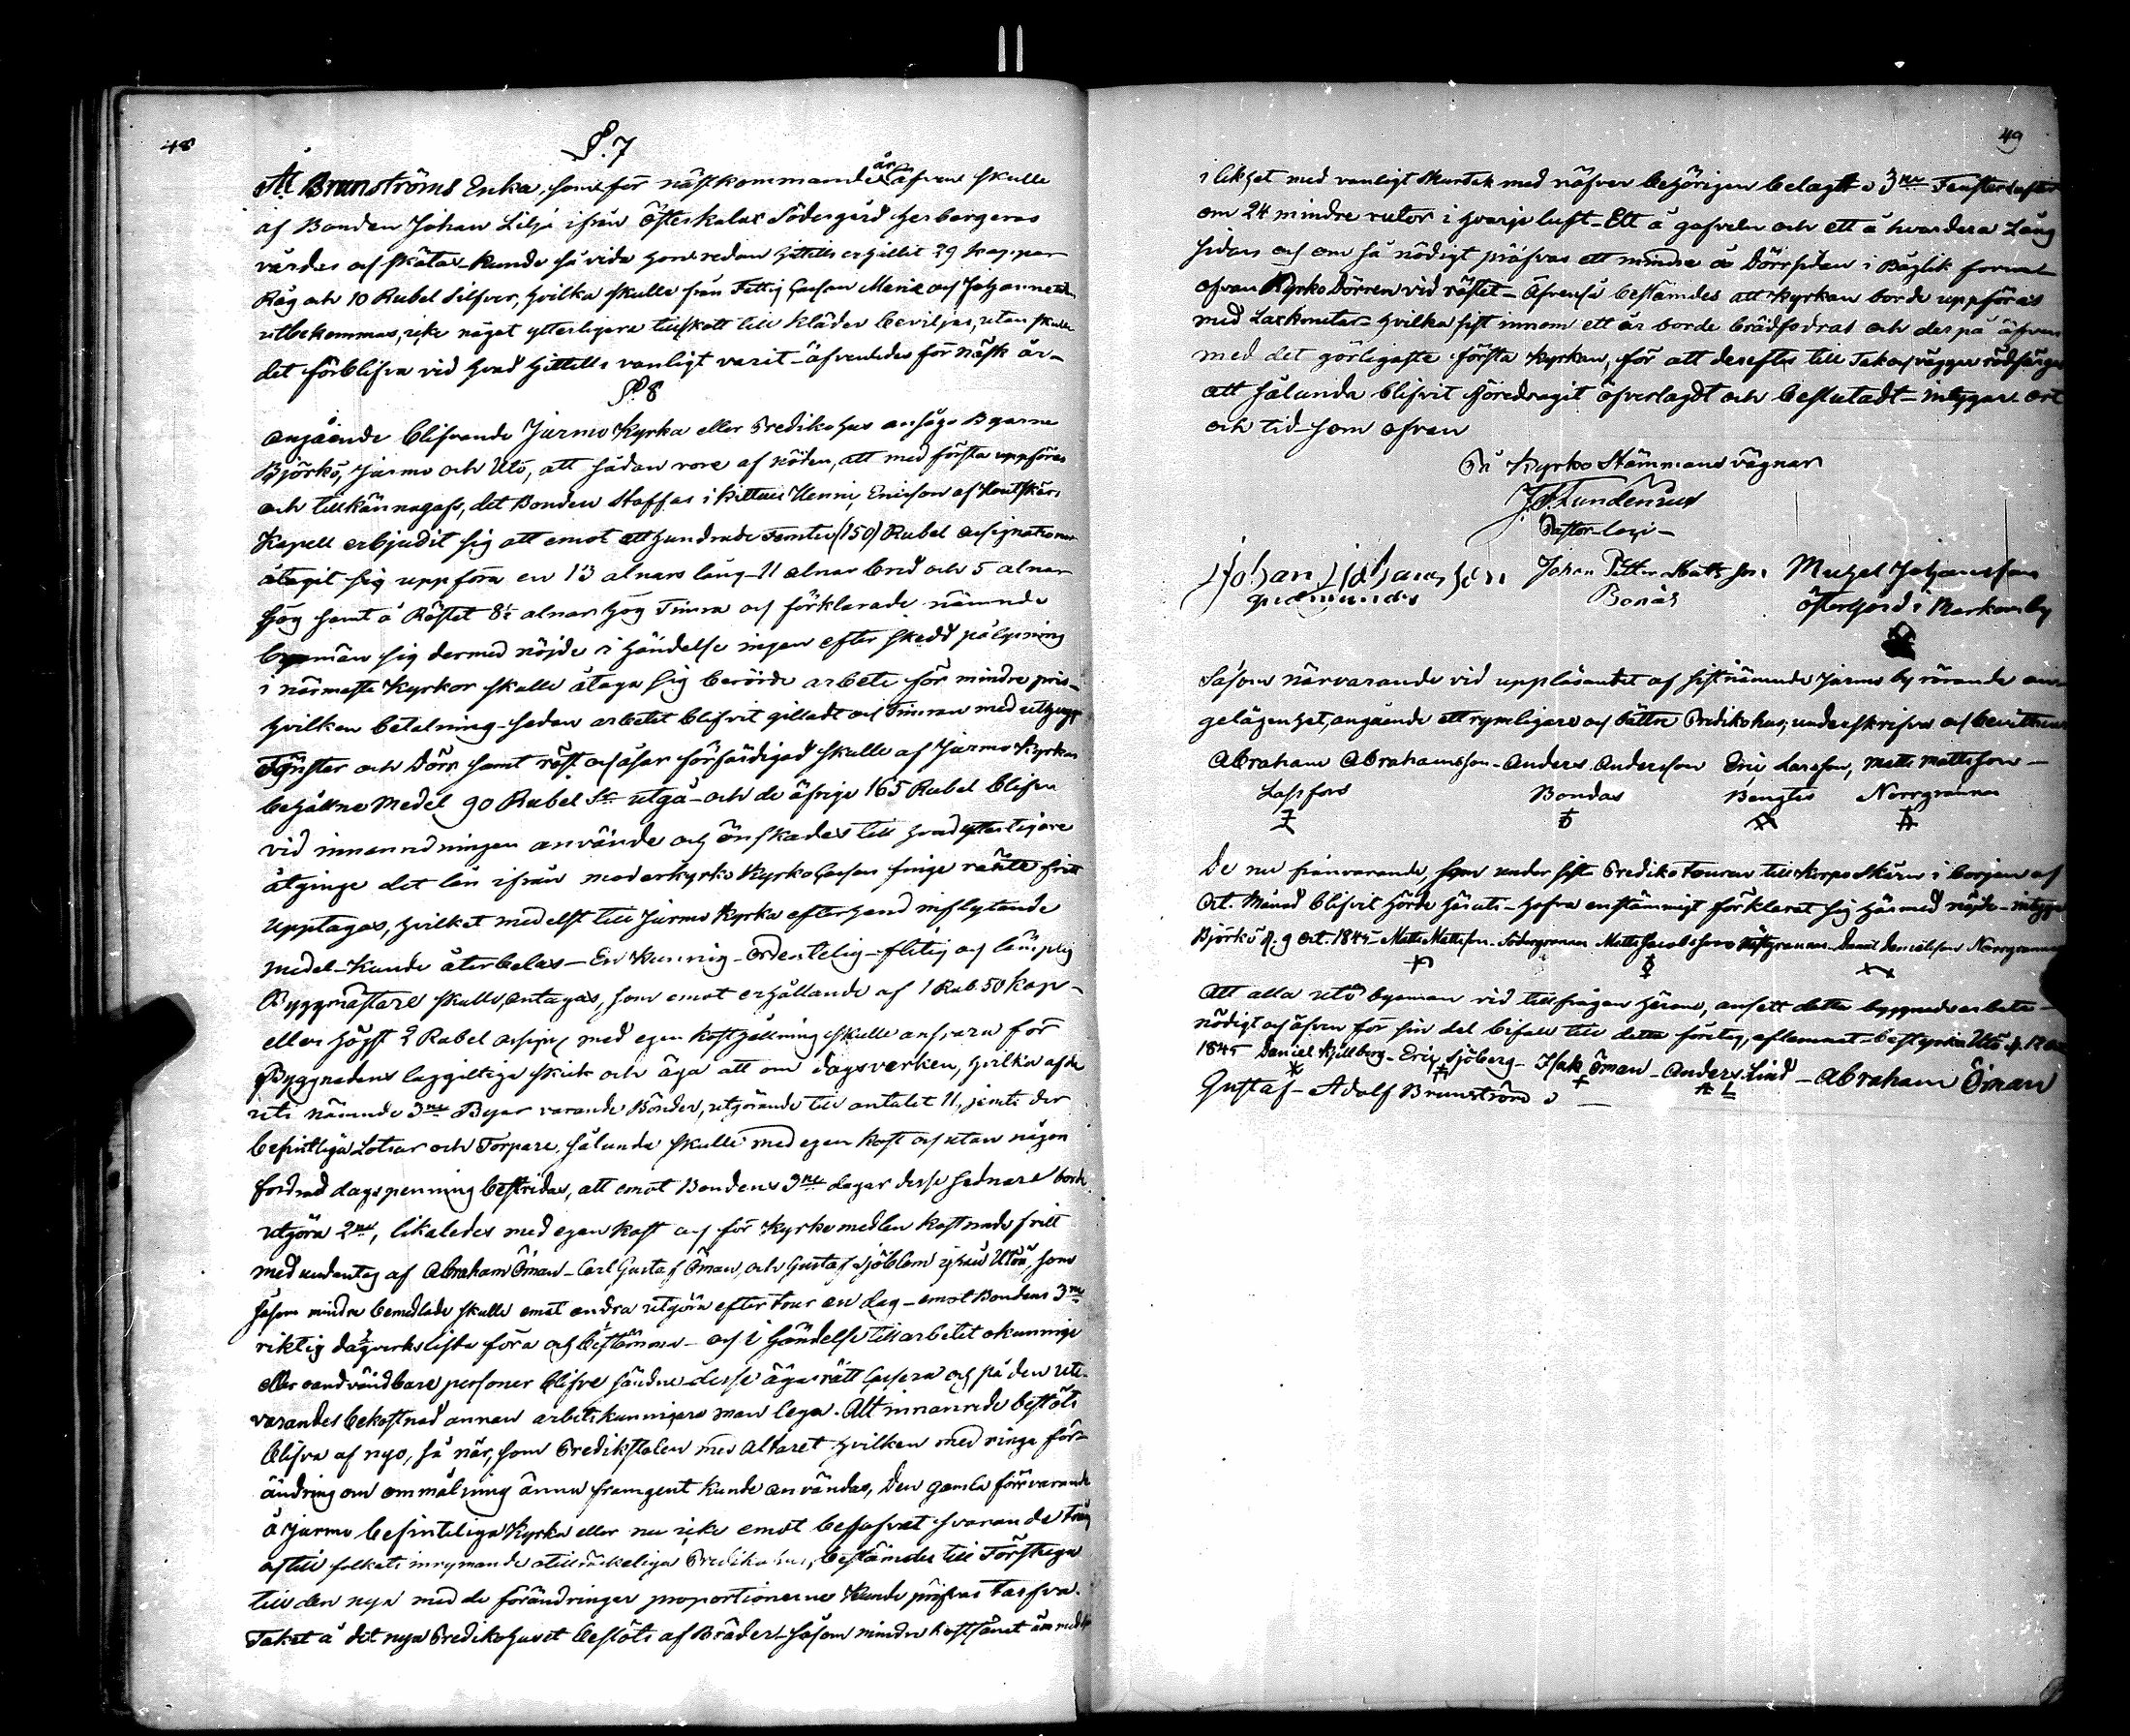 48
§. 7
Att Brunströms Enka, som för nästkommande år äfven skulle
af Bonden Johan Lilja ifrån Österkalax Södergård herbergeras
vårdas och skötas kunde så vida hon redan hittills erhållit 29 kappar
Råg och 10 Rubel Silfver, hvilka skulle från Fattig Cassan Meria och Johannetid
utbekommas, icke något ytterligare tillskott till kläder beviljas, utan skulle
det förblifva vid hvad hittills vanligt varit - äfvenledes för näst år -
§. 8
Angående blifvande Jurmo Kyrka eller Predikohus ansågo Byarne
Björkö, Jurmo och Utö, att sådan vore af nöden, att med första uppföras
och tillkännagafs, det Bonden Staffas i Kittuis Henric Ericsson af Houtskärs
Kapell erbjudit sig att emot ett hundrade Femtio (150) Rubel Assignationer
åtagit sig uppföra en 13 alnars lång - 11 alnar bred och 5 alnar
hög samt å Röstet 8½ alnar hög Timra och förklarade nämnde
byamän sig dermed nöjde i händelse ingen efter skedd pålysning
i närmaste Kyrkor skulle åtaga sig berörde arbete för mindre pris -
hvilken betalning sedan arbetet blifvit gilladt och Timran med uthugg
Fönster och Dörr samt röst och åsar färfärdigad skulle af Jurmo Kyrkas
behållne Medel 90 Rubel Sr utgå - och de öfrige 165 Rubel blifva
vid innanredningen använde och önskades till hvad ytterligare
åtginge det lån ifrån moderkyrko Kyrko Cassan finge ränte fritt
upptagas, hvilket medelst till Jurmo Kyrka efterhand inflytande
medel - kunde återbetalas - En kunnig - ordentelig - flitig och lämplig
Byggmästare skulle antagas, som emot erhållande af 1 Rub. 50 kop -
eller högst 2 Rubel assign med egen kosthållning skulle ansvara för
Byggnadens laggiltiga skick och äga att om dagsverken, hvilka af de
uti nämnde 3ne Byar varande Bönder, utgörande till antalet 11, jemte der
befintliga Lotsar och Torpare, sålunda skulle med egen kost och utan någon
fordrad dagspenning bestridas, att emot Bondens 3ne dagar desse sednare borde
utgöra 2ne, likaledes med egen kost och för Kyrkomedlen kostnads fritt
med undantag af Abraham Öman - Carl Gustaf Öman, och Gustaf Sjöblom ifrån Utö, som
såsom mindre bemedlade skulle emot andra utgöra efter tour en dag - emot Bondens 3ne
riktig dagsverkslista föra och bestämma - och i händelse till arbetet okunnige
eller oandvändbare personer blifve sände desse äga rätt cassera och på den ute-
varandes bekostnad annan arbetskunnigare man lega. Allt innanrede bestöts
blifva af nyo, så när, som Predikstolen med Altaret hvilken med ringa för-
ändring och ommålning ännu framgent kunde användas, Den gamla förvarande
å Jurmo befinteliga Kyrka eller nu icke emot behofvet svarande trång
och till folkets inrymmande otillräckeliga Predikohus, bestämdes till Förstuga
till den nya med de förändringar proportionerne kunde pröfvas tarfva.
Taket å det nya Predikohuset beslöts af Bräder såsom mindre kostsamt än med
49
i likhet med vanligt Skurtak med näfver behörigen belagdt - 3ne Fensterlufter
om 24 mindre rutor i hvarje luft - Ett å gafveln och ett å hvardera Lång
sidan och om så nödigt pröfvas ett mindre å Dörrsidan i Båglik format
ofvan Kyrko Dörren vid röstet - Äfvenså bestämdes att kyrkan borde uppföras
med Laxknutar - hvilka sist innom ett år borde brädfodras och derpå äfven
med det görligaste första Kyrkan, för att derefter till Tak och väggar rödfärgas
att sålunda blifvit föredragit öfverlagdt och beslutadt - intygar. ort
och tid som ofvan
På Kyrko Stämmans vägnar
J. F. Lundenius
Pastor loci -
Johan Johansson Johan Petter Matts son Michel Johansson
gudmunds Bonäs Östergård i Markomby
Såsom närvarande vid uppläsandet af sistnämnde Jurmo by rörande an-
gelägenhet, angående ett rymligare och bättre Predikohus, underskrifva och bevittna
Abraham Abrahamsson - Anders Andersson Eric Larsson, Matts Mattsson -
Lassfors Bondas Bengtes Norrgranna
De nu frånvarande, som under sista Prediko touren till Korpo Skären i början af
Oct. Månad blifvit hörde häruti - hafva enstämmigt förklarat sig härmed nöjde - intygas
Björkö d. 9 Oct. 1845 - Matts Mattsson. Södergrannas Matts Jacobsson Östgrannas - Daniel Danielsson Norrgrannas
Att alla Utö byaman vid tillfrågan härom, ansett detta byggnads arbete -
nödigt och äfven för sin del bifall till detta företag, aflemnat - bestyrka Utö d. 12 Oct
1845 Daniel Kjellberg - Eric Sjöberg - Isak Öman - Anders Lind - Abraham Öman
Gustaf - Adolf Brunström